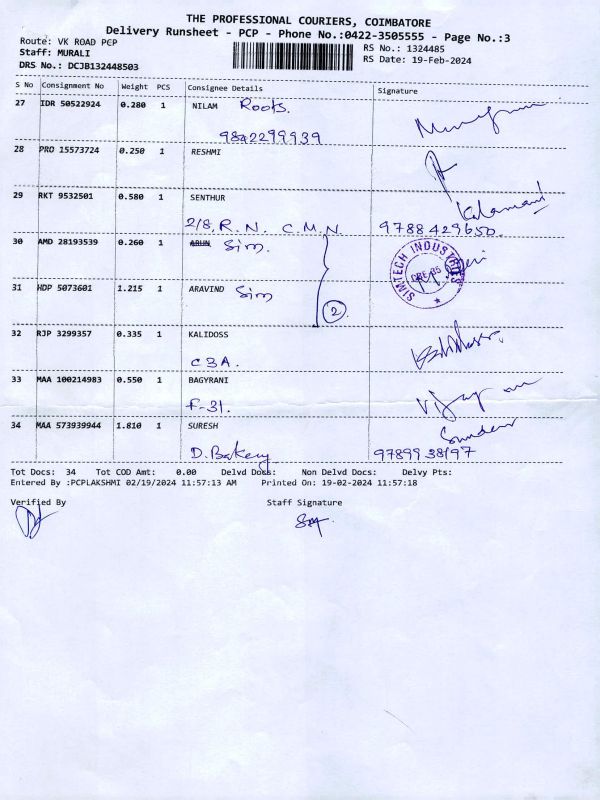 THE PROFESSIONAL COURIERS, COIMBATORE
Delivery Runsheet - PCP - Phone No.:0422-3505555 - Page No.:3
Route: VK ROAD PCP
Staff: MURALI
DRS No.: DCJB132448503
RS No.: 1324485
RS Date: 19-Feb-2024
S No Consignment No Weight PCS Consignee Details Signature
27 IDR 50522924 0.280 1 NILAM Roots.
9842299939
28 PRO 15573724 0.250 1 RESHMI
29 RKT 9532501 0.580 1 SENTHUR
2/8, R. N. C. M. N. 9788429650.
30 AMD 28193539 0.260 1 ARUN Sim.
SIMTECH INDUSTRIES
CBE-35
31 HDP 5073601 1.215 1 ARAVIND Sim
2
32 RJP 3299357 0.335 1 KALIDOSS
C3A.
33 MAA 100214983 0.550 1 BAGYRANI
F-31.
34 MAA 573939944 1.810 1 SURESH
D. Bakery 9789938197
Tot Docs: 34 Tot COD Amt: 0.00 Delvd Docs: Non Delvd Docs: Delvy Pts:
Entered By :PCPLAKSHMI 02/19/2024 11:57:13 AM Printed On: 19-02-2024 11:57:18
Verified By Staff Signature